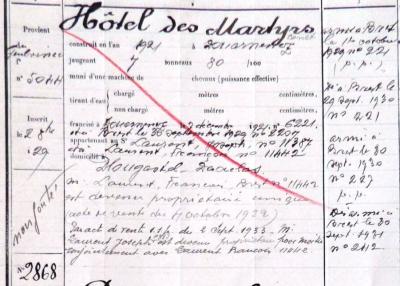 Hôtel des Martyrs
Provient
construit en l'an 1921 à Douarnenez
jaugeant 7 tonneaux 80 /100
muni d'une machine de chevaux (puissance effective)
chargé mètres centimètres,
tirant d'eau
chargé mètres centimètres,
francisé à 6221
Brest le 28 septembre 1929 N° 2207
appartenant à Laurent Joseph, N° 11387
et à Laurent François N° 11442
domicilié à
Plougastel-Daoulas
M. Laurent François Brest N° 11442
est devenu propriétaire unique
(acte de vent du 4 octobre 1932)
Par acte de vente du 2 Sept 1933 M.
Laurent Joseph est devenu propriétaire pour moitié
conjointement avec Laurent François 11442
N° 5044
Inscrit
le 28 9bre
29
non ponté
N° 2868
armé à Brest
le 1er octobre
1929 N° 221
(p.p.)
Dé à Brest le
29 Sept. 1930
N° 21
armé à
Brest le 30
Sept. 1930
N° 227
p.p.
Désarmé à
Brest le 30
Sept. 1931
N° 212